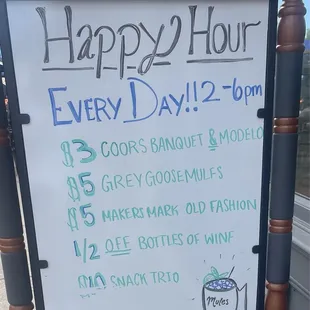 Happy Hour
EVERY DAY!! 2-6pm
$3 COORS BANQUET & MODELO
$5 GREY GOOSE MULES
$5 MAKERS MARK OLD FASHION
1/2 OFF BOTTLES OF WINE
SNACK TRIO
Moles